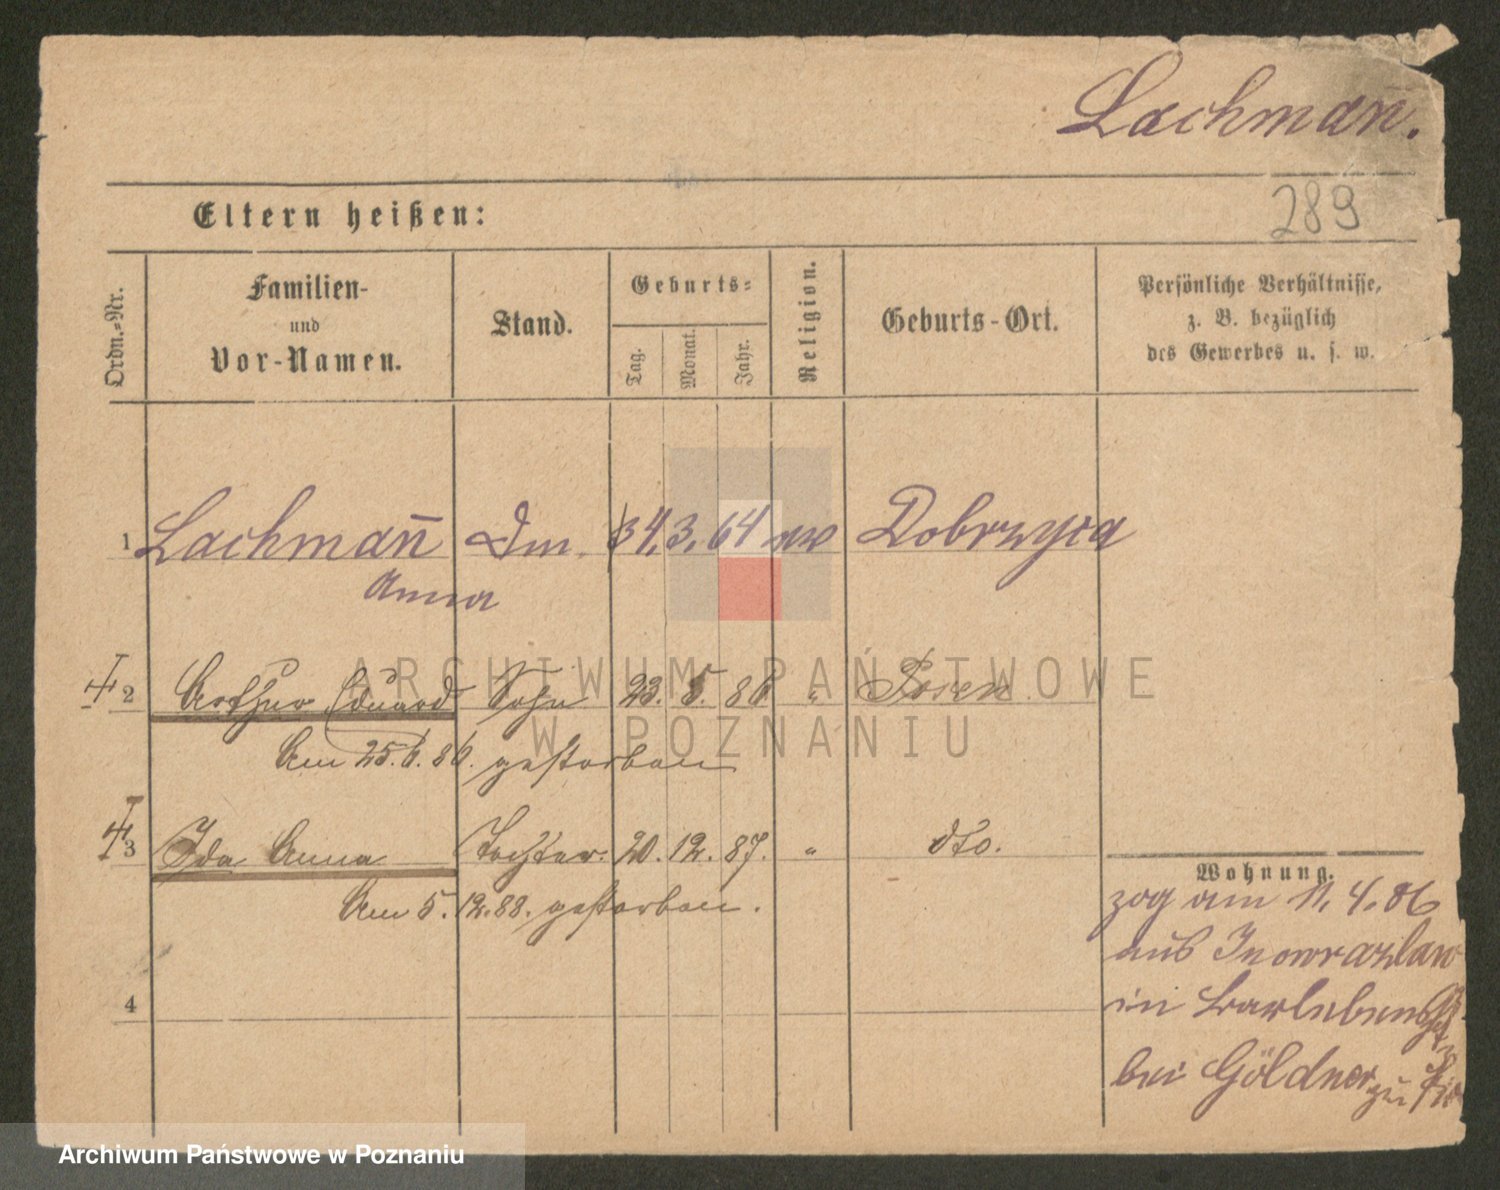 Lachman̄.
289
Eltern heißen:
Ordn.-Nr.
Familien-
und
Vor-Namen.
Stand.
Geburts-
Tag.
Monat.
Jahr.
Religion.
Geburts-Ort.
Persönliche Verhältnisse,
z. B. bezüglich
des Gewerbes u. s. w.
1 Lachman̄ Dm. 4. 3. 64 ev Dobrzyca
Anna
2 Arthur Eduard Sohn 23. 5. 86 " Posen
Am 25.6.86. gestorben
3 Ida Anna Tochter. 20. 12. 87. " dto.
Am 5. 12. 88. gestorben.
4
Wohnung.
zog am 11. 4. 86
aus Inowrazlaw
in
bei Göldner zu
ARCHIWUM PAŃSTWOWE
W POZNANIU
Archiwum Państwowe w Poznaniu